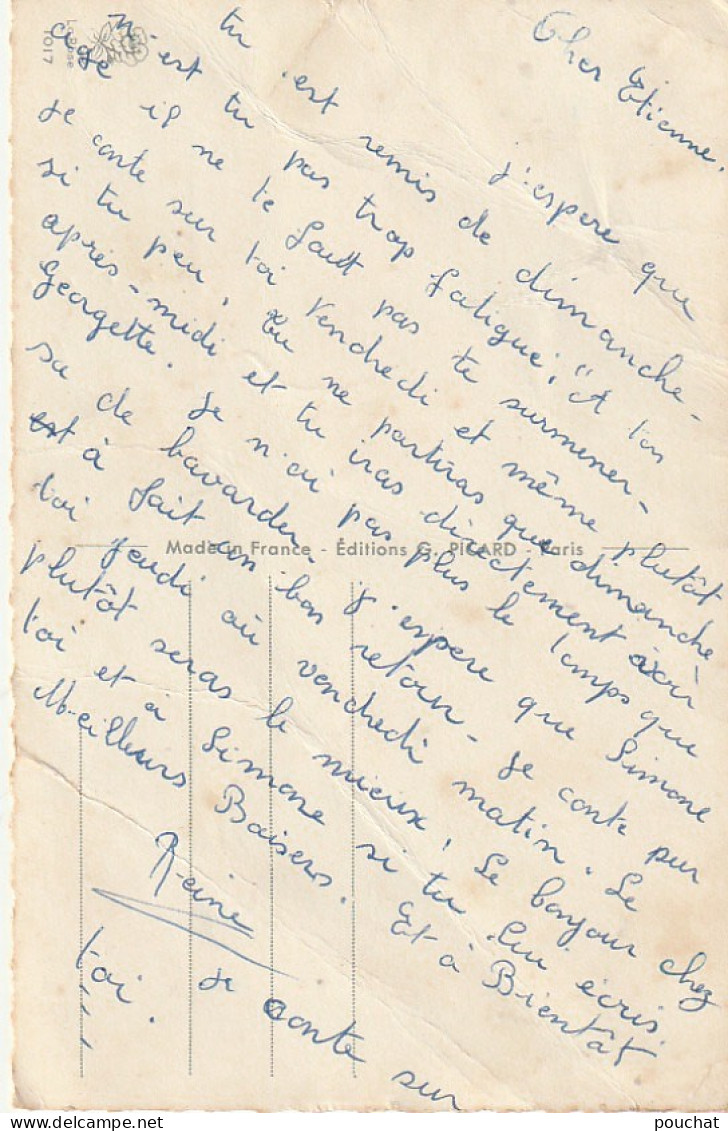 Cher Etienne.
J'espere que
tu est remis de dimanche-
n'est tu pas trop fatigué; "A ton
age il ne te faut pas te surmener-
Je conte sur toi Vendredi et même plutôt
si tu peu, tu ne partiras que dimanche
après-midi et tu iras directement voir
Georgette. Je n'ai pas plus le temps que
sa de bavarder- J'espere que Simone
est à fait un bon retour- Je conte sur
toi jeudi où vendredi matin. Le
plutôt seras le mieux! Le bonjour chez
toi et à Simone si tu lui écris.
Meilleurs Baisers. Et à Bientôt
Reine
Je conte sur
toi.
Made in France - Éditions G. PICARD - Paris
La Rose
1017
pouchat